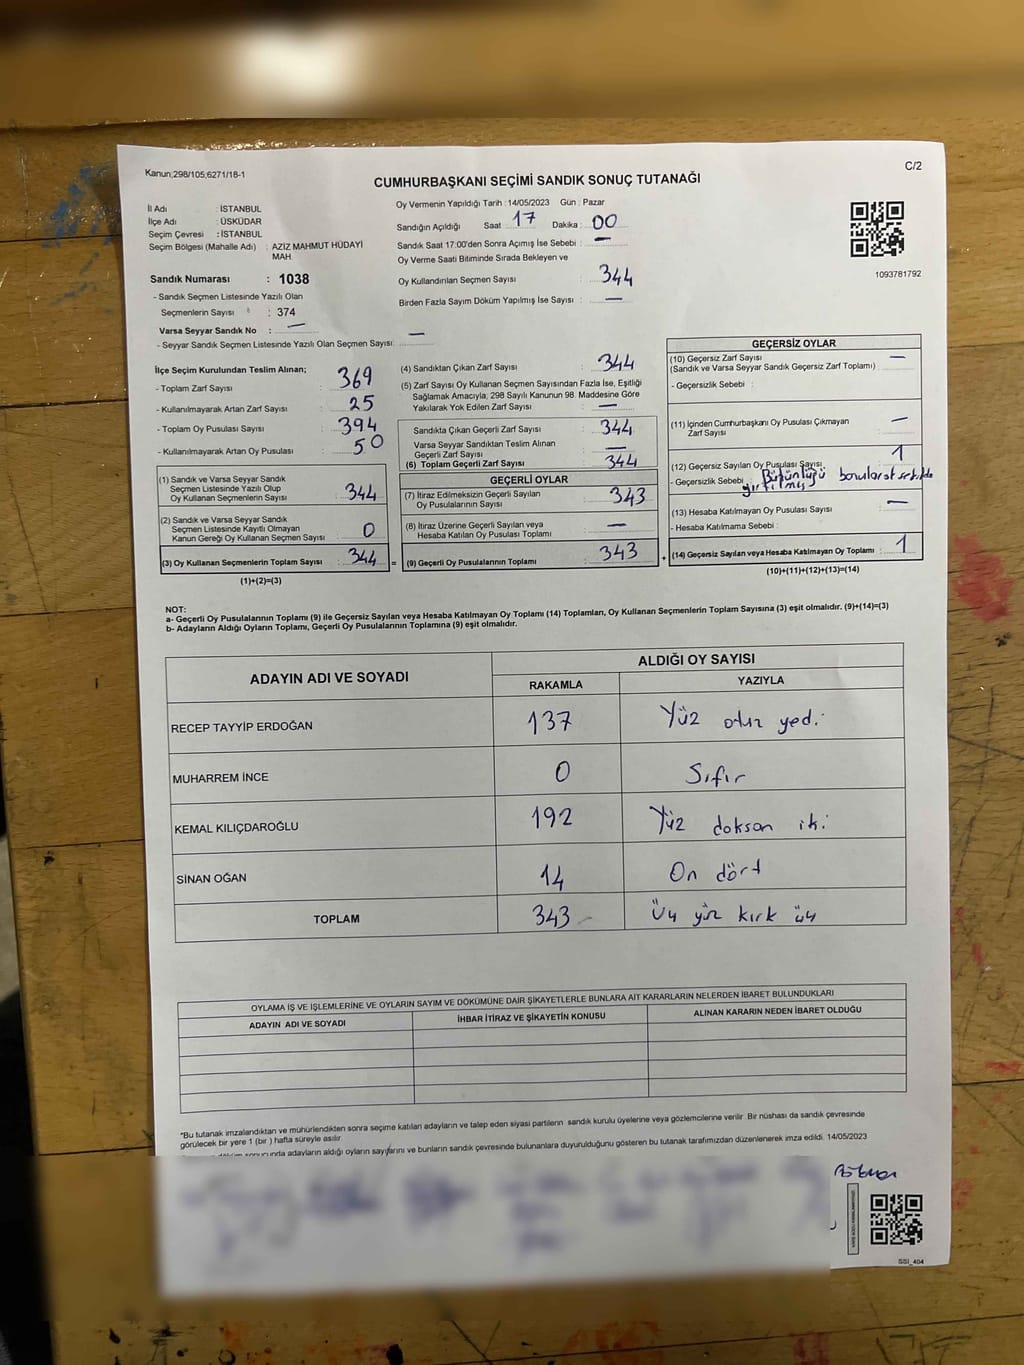 Kanun;298/105;6271/18-1
C/2
CUMHURBAŞKANI SEÇİMİ SANDIK SONUÇ TUTANAĞI
İl Adı : İSTANBUL
İlçe Adı : ÜSKÜDAR
Seçim Çevresi : İSTANBUL
Seçim Bölgesi (Mahalle Adı) : AZİZ MAHMUT HÜDAYİ
MAH.
Sandık Numarası : 1038
- Sandık Seçmen Listesinde Yazılı Olan
Seçmenlerin Sayısı : 374
Varsa Seyyar Sandık No : —
- Seyyar Sandık Seçmen Listesinde Yazılı Olan Seçmen Sayısı: —
Oy Vermenin Yapıldığı Tarih : 14/05/2023 Gün : Pazar
Sandığın Açıldığı Saat 17 Dakika : 00
Sandık Saat 17:00'den Sonra Açımış İse Sebebi : —
Oy Verme Saati Bitiminde Sırada Bekleyen ve
Oy Kullandırılan Seçmen Sayısı : 344
Birden Fazla Sayım Döküm Yapılmış İse Sayısı : —
1093781792
İlçe Seçim Kurulundan Teslim Alınan;
- Toplam Zarf Sayısı : 369
- Kullanılmayarak Artan Zarf Sayısı : 25
- Toplam Oy Pusulası Sayısı : 394
- Kullanılmayarak Artan Oy Pusulası : 50
(1) Sandık ve Varsa Seyyar Sandık
Seçmen Listesinde Yazılı Olup
Oy Kullanan Seçmenlerin Sayısı : 344
(2) Sandık ve Varsa Seyyar Sandık
Seçmen Listesinde Kayıtlı Olmayan
Kanun Gereği Oy Kullanan Seçmen Sayısı : 0
(3) Oy Kullanan Seçmenlerin Toplam Sayısı : 344
(1)+(2)=(3)
(4) Sandıktan Çıkan Zarf Sayısı : 344
(5) Zarf Sayısı Oy Kullanan Seçmen Sayısından Fazla İse, Eşitliği
Sağlamak Amacıyla; 298 Sayılı Kanunun 98. Maddesine Göre
Yakılarak Yok Edilen Zarf Sayısı : —
Sandıkta Çıkan Geçerli Zarf Sayısı : 344
Varsa Seyyar Sandıktan Teslim Alınan
Geçerli Zarf Sayısı : —
(6) Toplam Geçerli Zarf Sayısı : 344
GEÇERLİ OYLAR
(7) İtiraz Edilmeksizin Geçerli Sayılan
Oy Pusulalarının Sayısı : 343
(8) İtiraz Üzerine Geçerli Sayılan veya
Hesaba Katılan Oy Pusulası Toplamı : —
= (9) Geçerli Oy Pusulalarının Toplamı : 343 +
GEÇERSİZ OYLAR
(10) Geçersiz Zarf Sayısı : —
(Sandık ve Varsa Seyyar Sandık Geçersiz Zarf Toplamı)
- Geçersizlik Sebebi :
(11) İçinden Cumhurbaşkanı Oy Pusulası Çıkmayan
Zarf Sayısı : —
(12) Geçersiz Sayılan Oy Pusulası Sayısı : 1
- Geçersizlik Sebebi : Bütünlüğü bozulacak şekilde
yırtılmış
(13) Hesaba Katılmayan Oy Pusulası Sayısı : —
- Hesaba Katılmama Sebebi :
(14) Geçersiz Sayılan veya Hesaba Katılmayan Oy Toplamı : 1
(10)+(11)+(12)+(13)=(14)
NOT:
a- Geçerli Oy Pusulalarının Toplamı (9) ile Geçersiz Sayılan veya Hesaba Katılmayan Oy Toplamı (14) Toplamları, Oy Kullanan Seçmenlerin Toplam Sayısına (3) eşit olmalıdır. (9)+(14)=(3)
b- Adayların Aldığı Oyların Toplamı, Geçerli Oy Pusulalarının Toplamına (9) eşit olmalıdır.
ADAYIN ADI VE SOYADI ALDIĞI OY SAYISI
RAKAMLA YAZIYLA
RECEP TAYYİP ERDOĞAN 137 Yüz otuz yedi
MUHARREM İNCE 0 Sıfır
KEMAL KILIÇDAROĞLU 192 Yüz doksan iki
SİNAN OĞAN 14 On dört
TOPLAM 343 Üç yüz kırk üç
OYLAMA İŞ VE İŞLEMLERİNE VE OYLARIN SAYIM VE DÖKÜMÜNE DAİR ŞİKAYETLERLE BUNLARA AİT KARARLARIN NELERDEN İBARET BULUNDUKLARI
ADAYIN ADI VE SOYADI İHBAR İTİRAZ VE ŞİKAYETİN KONUSU ALINAN KARARIN NEDEN İBARET OLDUĞU
*Bu tutanak imzalandıktan ve mühürlendikten sonra seçime katılan adayların ve talep eden siyasi partilerin sandık kurulu üyelerine veya gözlemcilerine verilir. Bir nüshası da sandık çevresinde
görülecek bir yere 1 (bir ) hafta süreyle asılır.
adayların aldığı oyların sayılarını ve bunların sandık çevresinde bulunanlara duyurulduğunu gösteren bu tutanak tarafımızdan düzenlenerek imza edildi. 14/05/2023
SSI_404